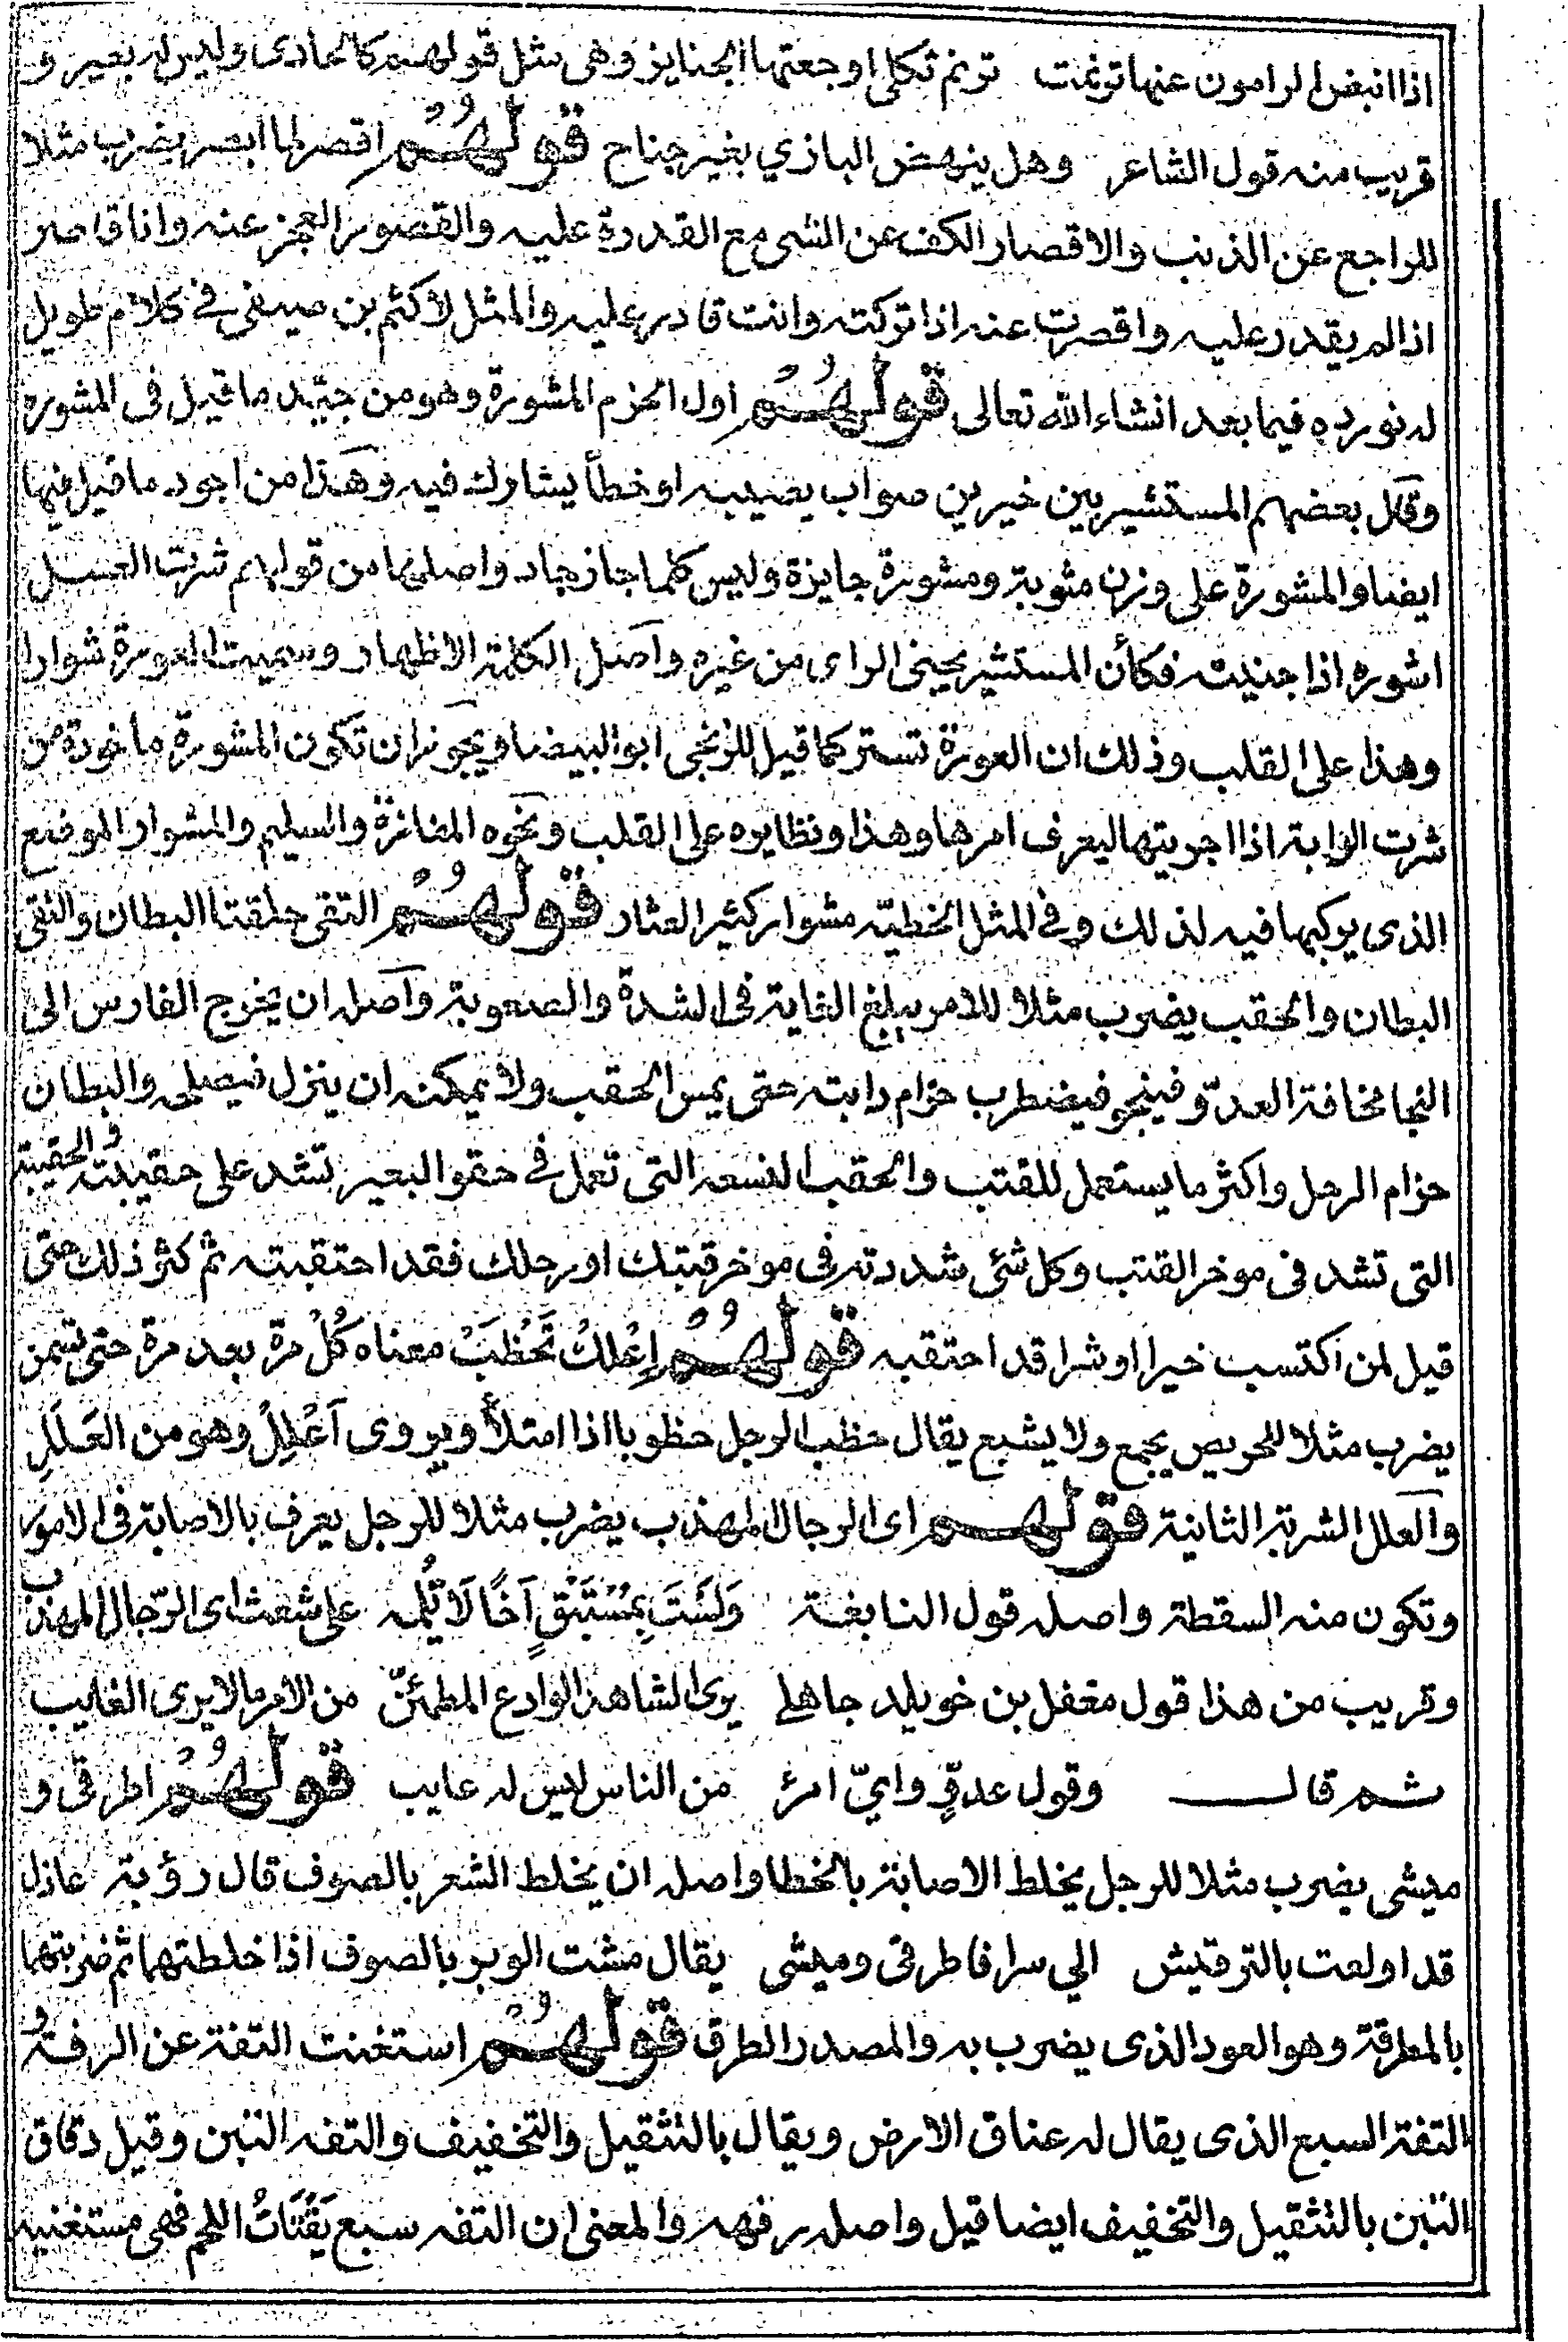 اذا انبض الرامون عنها ترنمت ترنم ثكلى اوجعتها الجنايز وهى مثل قولهم كالحادى وليس له بعير و
قريب منه قول الشاعر وهل ينهض البازي بغير جناح قولهم اقصر لما ابصر يضرب مثلا
للراجع عن الذنب والاقصار الكف عن الشى مع القدرة عليه والقصور العجز عنه وانا قاصر
اذا لم يقدر عليه واقصرت عنه اذا تركته وانت قادر عليه والمثل لأكثم بن صيفى في كلام طويل
له نورده فيما بعد انشاء الله تعالى قولهم اول الحزم المشورة وهو من جيّد ما قيل فى المشوره
وقال بعضهم المستشير بين خيرين صواب يصيبه او خطأ يشارك فيه وهذا من اجود ما قيل فيها
ايضا والمشورة على وزن مثوبة ومشورة جايزة وليس كلما جاز جاد واصلها من قولهم شرت العسل
اشوره اذا جنيته فكأن المستشير يجنى الراى من غيره واصل الكلمة الاظهار وسميت العورة شوارا
وهذا على القلب وذلك ان العورة تستر كما قيل للزنجى ابو البيضا ويجوز ان تكون المشورة ماخوذة من
شرت الدابة اذا اجريتها ليعرف امرها وهذا ونظايره على القلب ونحوه المفازة والسليم والمشوار الموضع
الذى يركبها فيه لذلك وفي المثل الخطبه مشوار كثير العثار قولهم التقى حلقتا البطان والتقى
البطان والحقب يضرب مثلا للامر يبلغ الغاية فى الشدة والصعوبة واصله ان يخرج الفارس الى
النجا مخافة العدوّ فينجو فيضطرب حزام دابته حتى يمس الحقب ولا يمكنه ان ينزل فيصلحه والبطان
حزام الرحل واكثر ما يستعمل للقتب والحقب النسعه التى تعمل في حقو البعير تشد على حقيبته والحقيبة
التى تشد فى موخر القتب وكل شئ شددته فى موخر قتبك او رحلك فقد احتقبته ثم كثر ذلك حتى
قيل لمن اكتسب خيرا او شرا قد احتقبه قولهم اِعْلُلْ تَحْظُبْ معناه كُلْ مرة بعد مرة حتى تسمن
يضرب مثلا للحريص يجمع ولا يشبع يقال حظب الرجل حظوبا اذا امتلأ ويروى اَعْلِلْ وهو من العَلَلِ
والعلل الشربة الثانية قولهم اى الرجال المهذب يضرب مثلا للرجل يعرف بالاصابة فى الامور
وتكون منه السقطة واصله قول النابغة وَلَسْتَ بِمُسْتَبْقٍ اَخًا لَا تَلُمّه على شعث اى الرّجال المهذب
وقريب من هذا قول مغفل بن خويلد جاهلے يرى الشاهد الوادع المطمئنّ من الامر ما لا يرى الغايب
ثم قال وقول عدوٍّ وايّ امرئ من الناس ليس له عايب قولهم اطرقى و
ميشى يضرب مثلا للرجل يخلط الاصابة بالخطا واصله ان يخلط الشعر بالصوف قال رؤبة عاذل
قد اولعت بالترقيش الي سرا فاطرقى وميشى يقال مشت الوبر بالصوف اذا خلطتهما ثم ضربتهما
بالمطرقة وهو العود الذى يضرب به والمصدر الطرق قولهم استغنت التفة عن الرفة و
التفة السبع الذى يقال له عناق الارض ويقال بالتثقيل والتخفيف والتفه التبن وقيل دقاق
التبن بالتثقيل والتخفيف ايضا قيل واصله رفهه والمعنى ان التفه سبع يَقْتَاتُ اللحم فهى مستغنيه